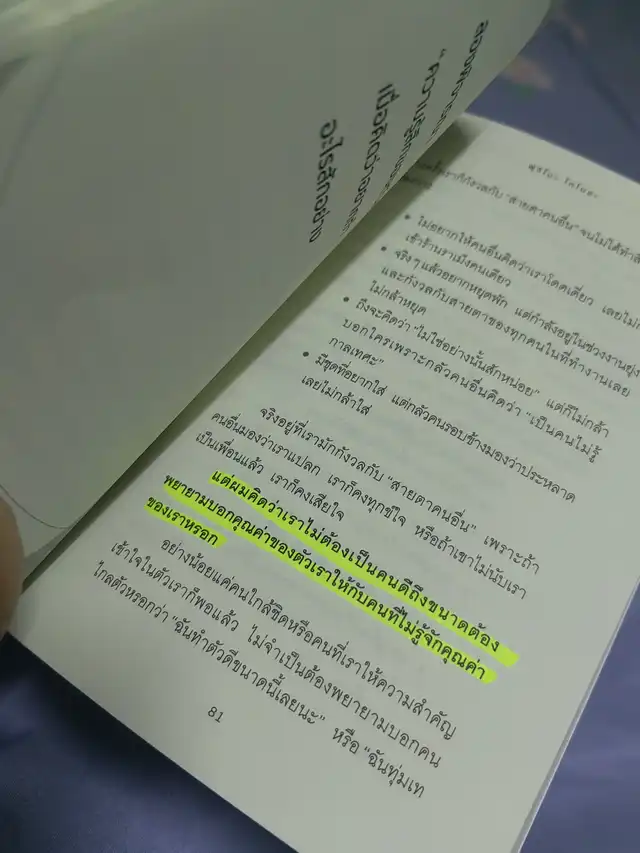 อะไรสักอย่าง
ฟุจโมะ โคโนะ
"สายตาคนอื่น" จนไม่ได้ทำ
• ไม่อยากให้คนอื่นคิดว่าเราโดดเดี่ยว เลยไม่
เข้าร้านราเม็งคนเดียว
• จริงๆ แล้วอยากหยุดพัก แต่กำลังอยู่ในช่วงงานยุ่ง
และกังวลกับสายตาของทุกคนในที่ทำงานเลย
ไม่กล้าหยุด
• ถึงจะคิดว่า "ไม่ใช่อย่างนั้นสักหน่อย" แต่ก็ไม่กล้า
บอกใครเพราะกลัวคนอื่นคิดว่า "เป็นคนไม่รู้
กาลเทศะ"
• มีชุดที่อยากใส่ แต่กลัวคนรอบข้างมองว่าประหลาด
เลยไม่กล้าใส่
จริงอยู่ที่เรามักกังวลกับ "สายตาคนอื่น" เพราะถ้า
คนอื่นมองว่าเราแปลก เราก็คงทุกข์ใจ หรือถ้าเขาไม่นับเรา
เป็นเพื่อนแล้ว เราก็คงเสียใจ
แต่ผมคิดว่าเราไม่ต้องเป็นคนดีถึงขนาดต้อง
พยายามบอกคุณค่าของตัวเราให้กับคนที่ไม่รู้จักคุณค่า
ของเราหรอก
อย่างน้อยแค่คนใกล้ชิดหรือคนที่เราให้ความสำคัญ
เข้าใจในตัวเราก็พอแล้ว ไม่จำเป็นต้องพยายามบอกคน
ไกลตัวหรอกว่า "ฉันทำตัวดีขนาดนี้เลยนะ" หรือ "ฉันทุ่มเท
81